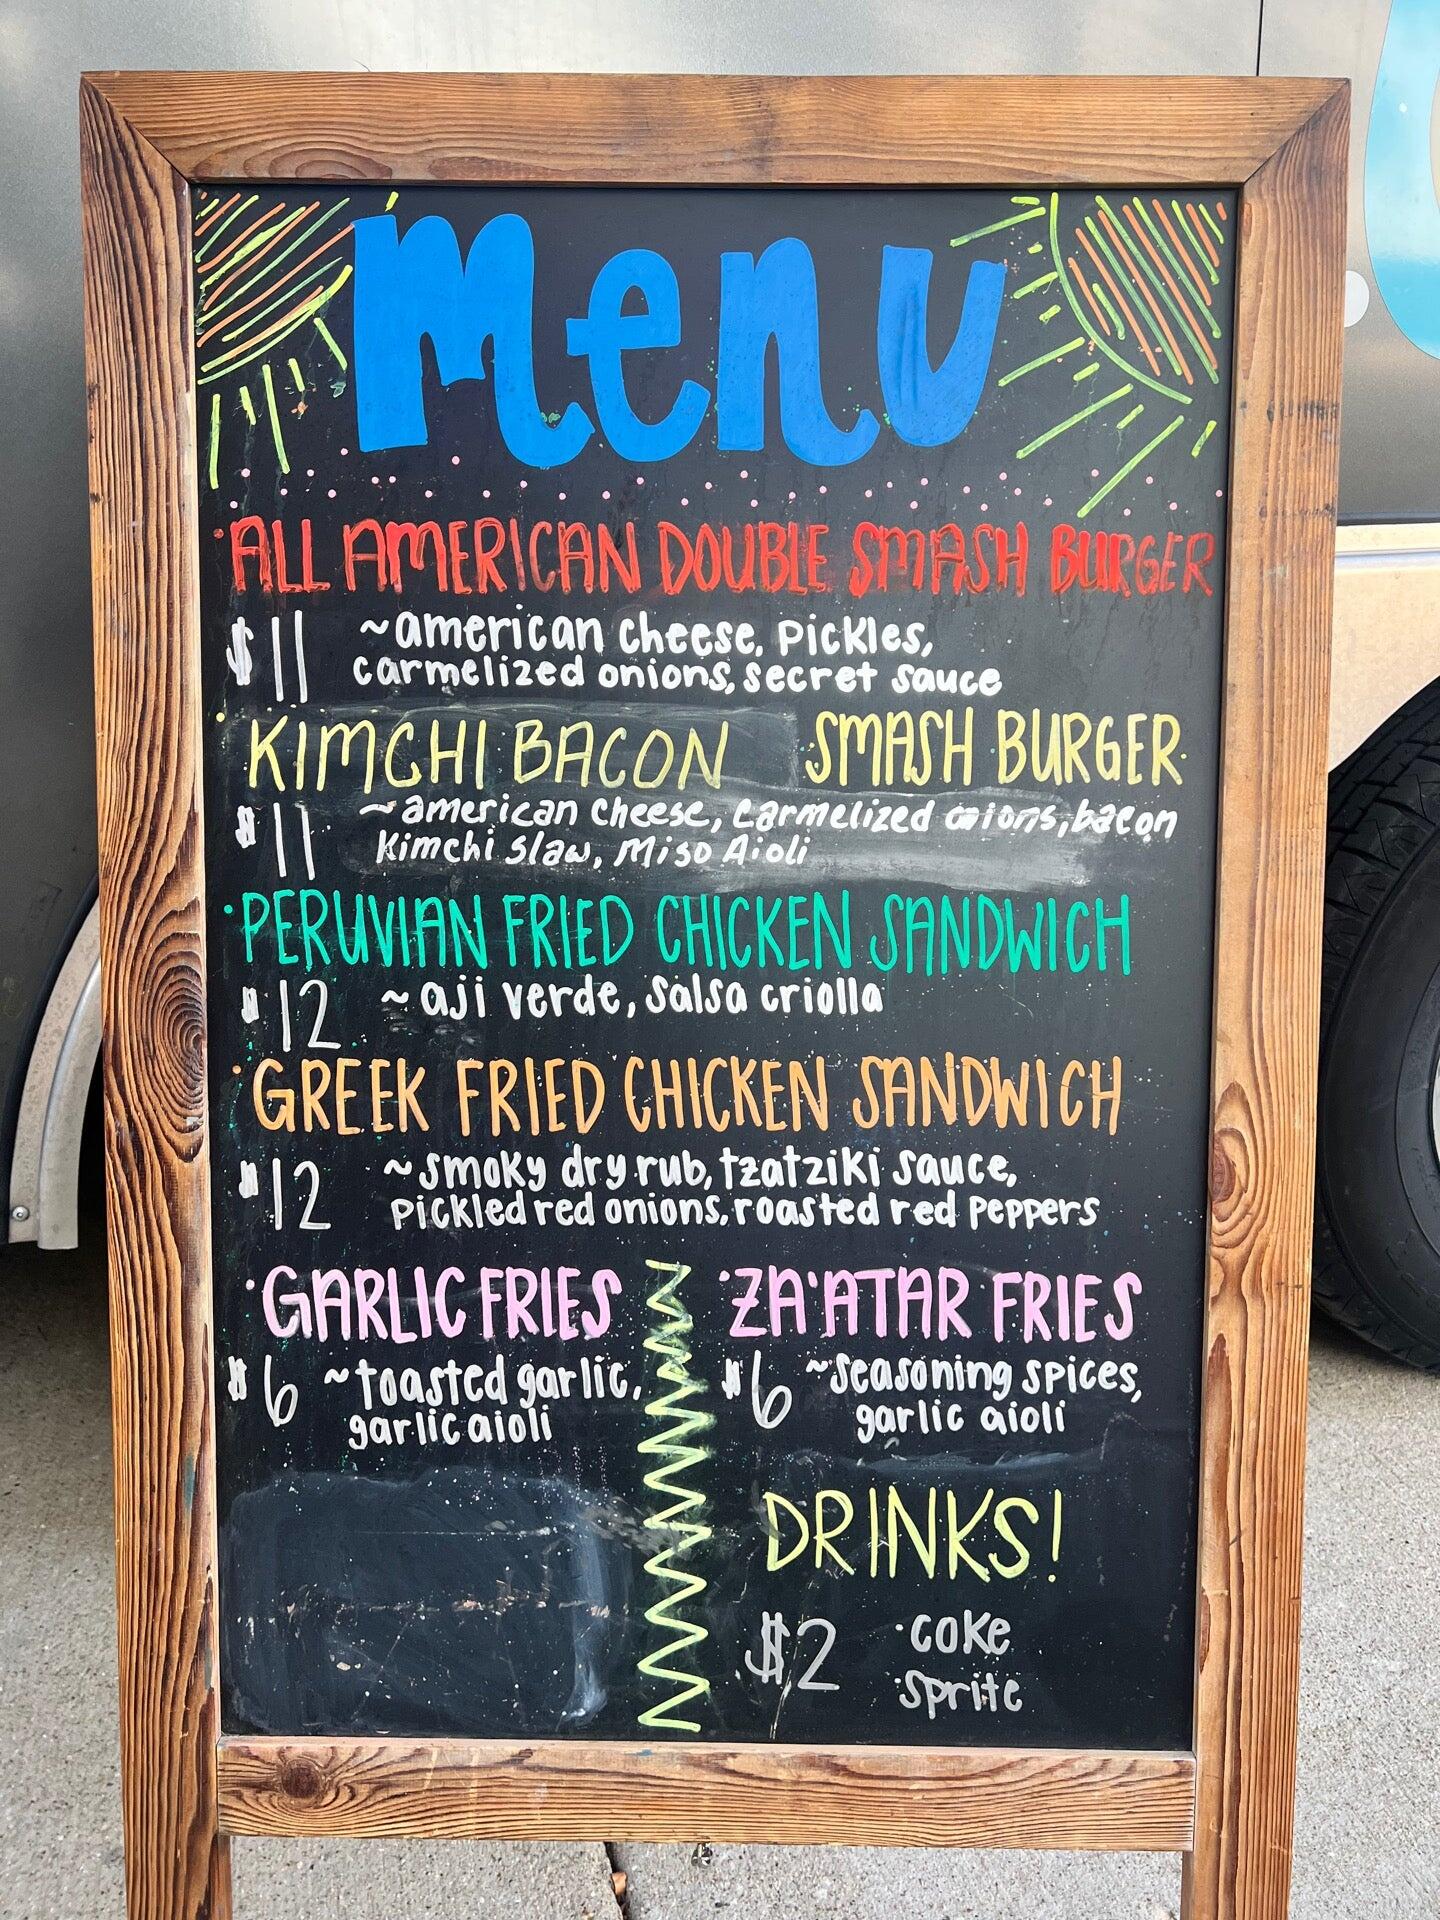 menu
·ALL AMERICAN DOUBLE SMASH BURGER
$11 ~american cheese, pickles,
carmelized onions, secret sauce
·KIMCHI BACON SMASH BURGER
$11 ~american cheese, carmelized onions, bacon
Kimchi slaw, Miso Aioli
·PERUVIAN FRIED CHICKEN SANDWICH
$12 ~aji verde, salsa criolla
·GREEK FRIED CHICKEN SANDWICH
$12 ~smoky dry rub, tzatziki sauce,
pickled red onions, roasted red peppers
·GARLIC FRIES
$6 ~toasted garlic,
garlic aioli
·ZA'ATAR FRIES
$6 ~seasoning spices,
garlic aioli
DRINKS!
$2 ·coke
·sprite